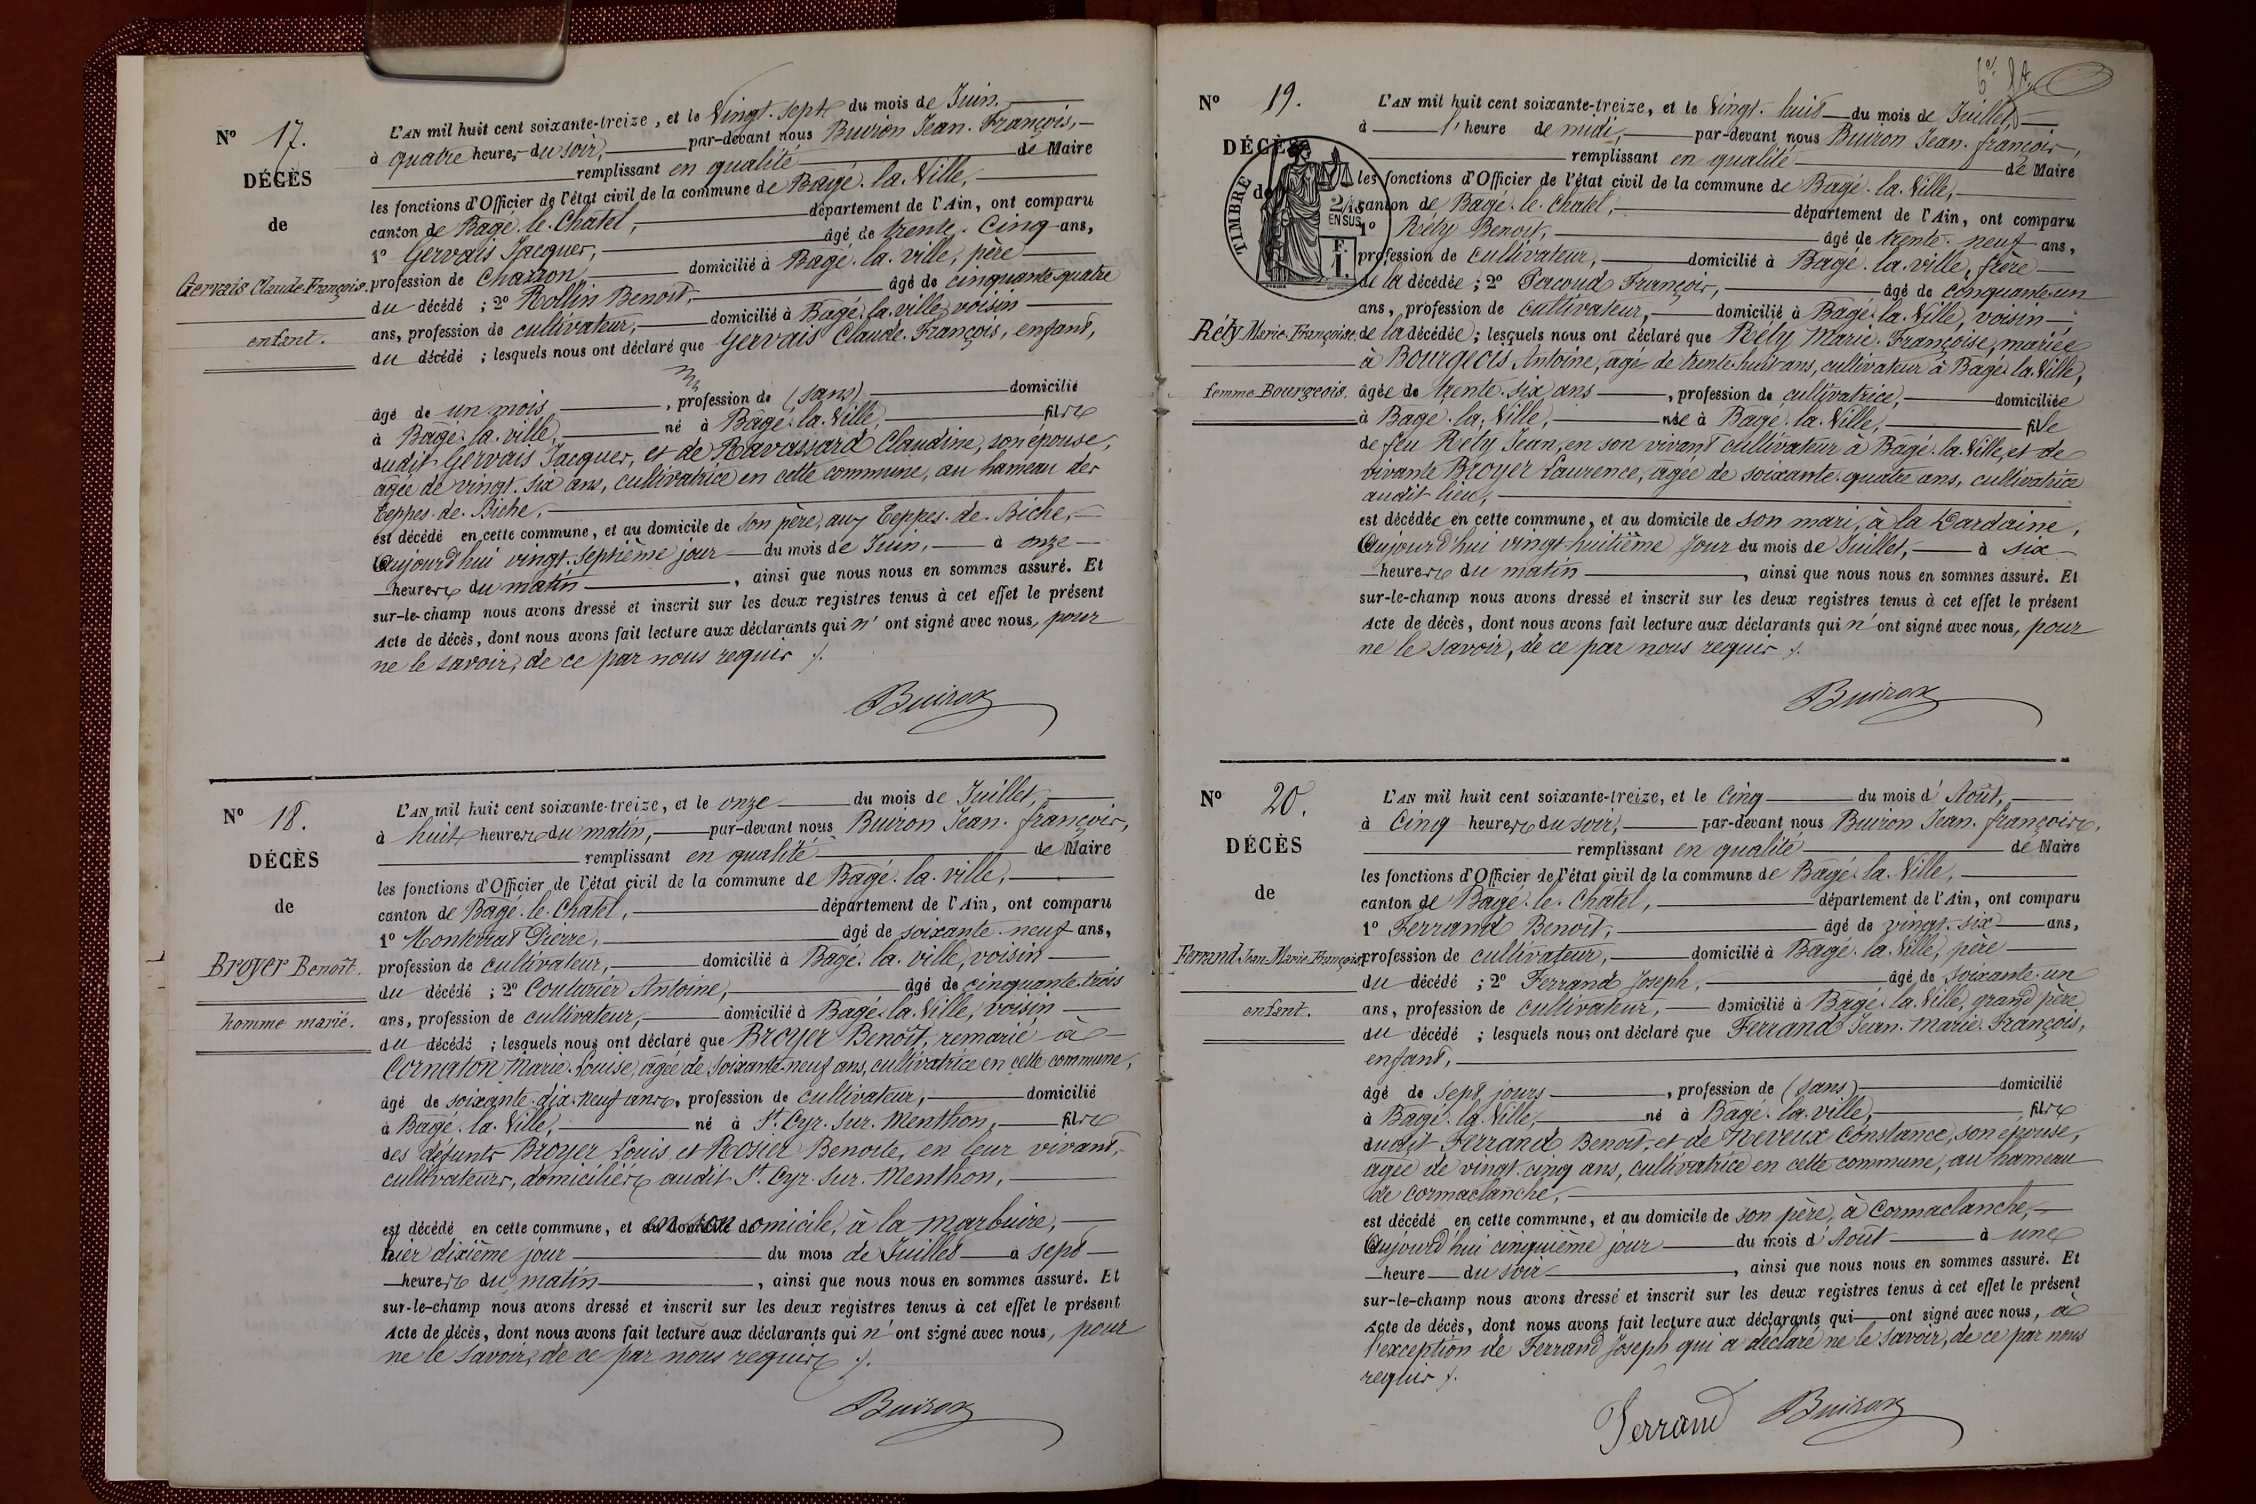 Nº 17.
DÉCÈS
de
Gervais Claude François.
enfant.
L'AN mil huit cent soixante-treize, et le Vingt-sept du mois de Juin,
à quatre heures du soir, par-devant nous Buiron Jean-François,
remplissant en qualité de Maire
les fonctions d'Officier de l'état civil de la commune de Bagé-la-Ville,
canton de Bagé-le-Chatel, département de l'Ain, ont comparu
1º Gervais Jacques, âgé de trente-Cinq ans,
profession de Charron, domicilié à Bagé-la-ville, père
du décédé ; 2º Rollin Benoit, âgé de cinquante-quatre
ans, profession de cultivateur, domicilié à Bagé-la-ville, voisin
du décédé ; lesquels nous ont déclaré que Gervais Claude-François, enfant,
âgé de un mois, profession de (sans) domicilié
à Bagé-la-ville, né à Bagé-la-Ville, fils
dudit Gervais Jacques, et de Ravassard Claudine, son épouse,
âgée de vingt-six ans, cultivatrice en cette commune, au hameau des
Teppes-de-Biche,
est décédé en cette commune, et au domicile de son père, aux Teppes-de-Biche,
Aujourd'hui vingt-septième jour du mois de Juin, à onze
heures du matin, ainsi que nous nous en sommes assuré. Et
sur-le-champ nous avons dressé et inscrit sur les deux registres tenus à cet effet le présent
Acte de décès, dont nous avons fait lecture aux déclarants qui n'ont signé avec nous, pour
ne le savoir, de ce par nous requis /.
Buiron
Nº 18.
DÉCÈS
de
Broyer Benoît.
homme marié.
L'AN mil huit cent soixante-treize, et le onze du mois de Juillet,
à huit heures du matin, par-devant nous Buiron Jean-François,
remplissant en qualité de Maire
les fonctions d'Officier de l'état civil de la commune de Bagé-la-ville,
canton de Bagé-le-Chatel, département de l'Ain, ont comparu
1º Monterrat Pierre, âgé de soixante-neuf ans,
profession de cultivateur, domicilié à Bagé-la-ville, voisin
du décédé ; 2º Couturier Antoine, âgé de cinquante-trois
ans, profession de cultivateur, domicilié à Bagé-la-Ville, voisin
du décédé ; lesquels nous ont déclaré que Broyer Benoît, remarié à
Cornaton Marie-Louise, âgée de soixante-neuf ans, cultivatrice en cette commune,
âgé de soixante-dix-neuf ans, profession de cultivateur, domicilié
à Bagé-la-Ville, né à St. Cyr-sur-Menthon, fils
des défunts Broyer Louis et Rosier Benoite, en leur vivant,
cultivateurs, domiciliés audit St. Cyr-sur-Menthon,
est décédé en cette commune, et en son domicile, à la Marbuire,
hier dixième jour du mois de Juillet à sept
heures du matin, ainsi que nous nous en sommes assuré. Et
sur-le-champ nous avons dressé et inscrit sur les deux registres tenus à cet effet le présent
Acte de décès, dont nous avons fait lecture aux déclarants qui n'ont signé avec nous, pour
ne le savoir, de ce par nous requis /.
Buiron
Nº 19.
DÉCÈS
de
TIMBRE
2/10
EN SUS
F. I.
Réty Marie-Françoise.
femme Bourgeois.
L'AN mil huit cent soixante-treize, et le Vingt-huit du mois de Juillet,
à l'heure de midi, par-devant nous Buiron Jean-François,
remplissant en qualité de Maire
les fonctions d'Officier de l'état civil de la commune de Bagé-la-Ville,
canton de Bagé-le-Chatel, département de l'Ain, ont comparu
1º Réty Benoit, âgé de trente-neuf ans,
profession de cultivateur, domicilié à Bagé-la-ville, frère
de la décédée ; 2º Perroud François, âgé de cinquante-un
ans, profession de cultivateur, domicilié à Bagé-la-Ville, voisin
de la décédée ; lesquels nous ont déclaré que Réty Marie-Françoise, mariée
à Bourgeois Antoine, âgé de trente-huit ans, cultivateur à Bagé-la-Ville,
âgée de trente-six ans, profession de cultivatrice, domiciliée
à Bagé-la-Ville, née à Bagé-la-Ville, fille
de feu Réty Jean, en son vivant cultivateur à Bagé-la-Ville, et de
vivante Broyer Laurence, âgée de soixante-quatre ans, cultivatrice
audit lieu,
est décédée en cette commune, et au domicile de son mari, à la Dardaine,
Aujourd'hui vingt-huitième jour du mois de Juillet, à six
heures du matin, ainsi que nous nous en sommes assuré. Et
sur-le-champ nous avons dressé et inscrit sur les deux registres tenus à cet effet le présent
Acte de décès, dont nous avons fait lecture aux déclarants qui n'ont signé avec nous, pour
ne le savoir, de ce par nous requis /.
Buiron
Nº 20.
DÉCÈS
de
Ferrand Jean-Marie-François.
enfant.
L'AN mil huit cent soixante-treize, et le Cinq du mois d'Août,
à Cinq heures du soir, par-devant nous Buiron Jean-François,
remplissant en qualité de Maire
les fonctions d'Officier de l'état civil de la commune de Bagé-la-Ville,
canton de Bagé-le-Chatel, département de l'Ain, ont comparu
1º Ferrand Benoit, âgé de vingt-six ans,
profession de cultivateur, domicilié à Bagé-la-Ville, père
du décédé ; 2º Ferrand Joseph, âgé de soixante-un
ans, profession de cultivateur, domicilié à Bagé-la-Ville, grand père
du décédé ; lesquels nous ont déclaré que Ferrand Jean-Marie-François,
enfant,
âgé de sept jours, profession de (sans) domicilié
à Bagé-la-Ville, né à Bagé-la-ville, fils
dudit Ferrand Benoit, et de Neveux Constance, son épouse,
âgée de vingt-cinq ans, cultivatrice en cette commune, au hameau
de Cormaclanche,
est décédé en cette commune, et au domicile de son père, à Cormaclanche,
Aujourd'hui cinquième jour du mois d'Août à une
heure du soir, ainsi que nous nous en sommes assuré. Et
sur-le-champ nous avons dressé et inscrit sur les deux registres tenus à cet effet le présent
Acte de décès, dont nous avons fait lecture aux déclarants qui ont signé avec nous, à
l'exception de Ferrand Joseph qui a déclaré ne le savoir, de ce par nous
requis /.
Ferrand Buiron